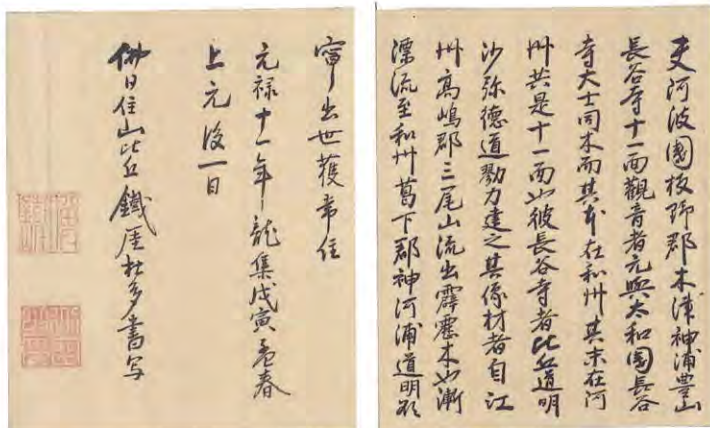 夫阿波國板野郡木津神浦豊山
長谷寺十一面觀音者元與太和國長谷
寺大士同木而其本在和州其末在阿
州共是十一面也彼長谷寺者比丘道明
沙弥德道勠力建之其像材者自江
州高嶋郡三尾山流出霹靂木也漸
漂流至和州葛下郡神河浦道明
寧出世獲常住
元禄十一年龍集戊寅孟春
上元後一日
佛日住山比丘鐵崖杜多書写